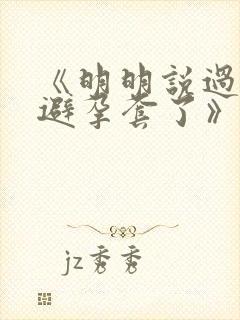 《明明說過
避孕套了》
jz秀秀